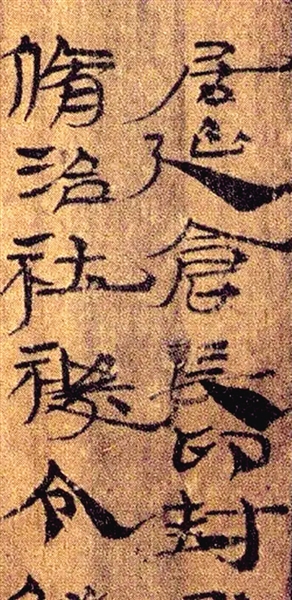 居延倉長印封
脩治社稷令